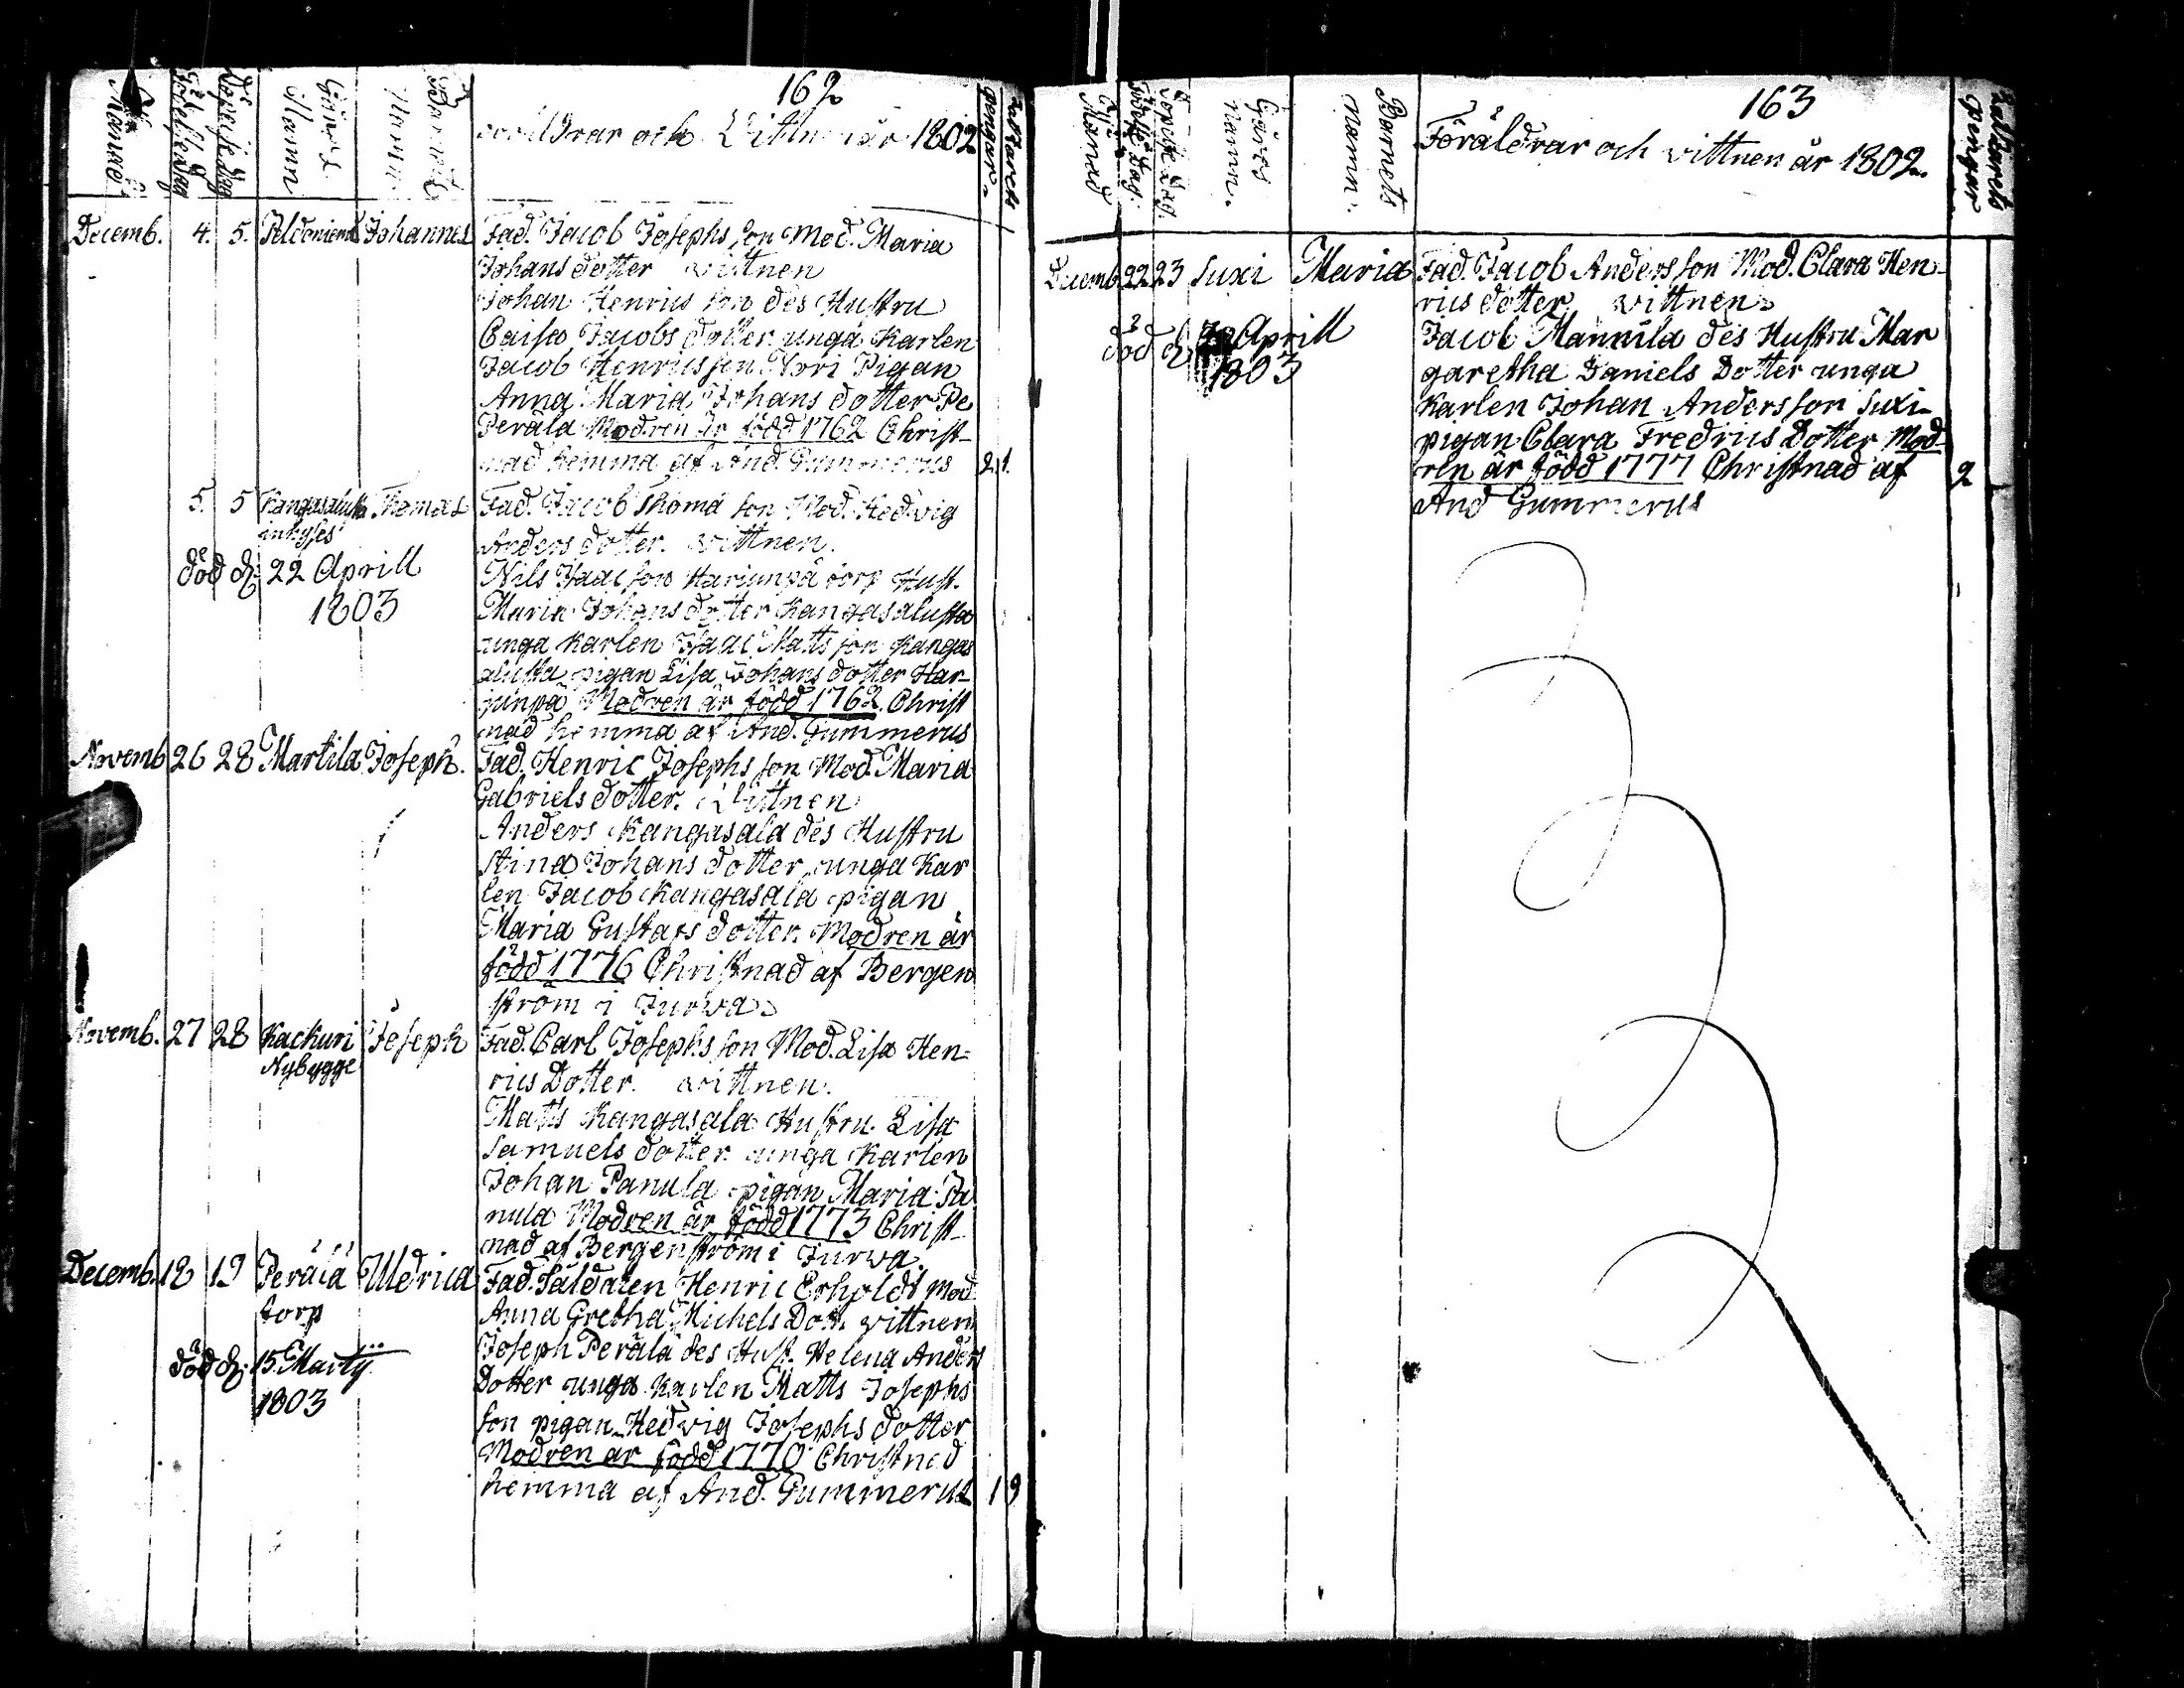 162
Månad
Födelse dag
Döpelse dag
Gårds Namn
Barnets Namn
Föräldrar och Vittn år 1802
Altarets pengar.
Decemb. 4. 5. Peldoniemi Johannes Fad. Jacob Josephs son Mod. Maria
Johans dotter vittnen
Johan Henrics son des Hustru
Caisa Jacobs dotter unga Karlen
Jacob Henrics son Nori Pigan
Anna Maria Johans dotter Pe
Perälä Modren är född 1762 Christ-
nad hemma af And. Gummerus 2 1.
5. 5 Kangasalusta Thomas Fad. Jacob Thomä son Mod. Hedvig
inhyses Anders dotter. vittnen.
död d. 22 Aprill Nils Isaac son Harjunpä torp Hust.
1803 Maria Johans dotter Kangasalusta
unga Karlen Isaac Matts son Kangas
alusta pigan Lisa Johans dotter Har-
junpä Modren är född 1762. Christ
nad hemma af And. Gummerus
Novemb 26 28 Martila Joseph. Fad. Henric Josephs son Mod. Maria
Gabriels dotter. Vittnen
Anders Kangasala des Hustru
Stina Johans dotter unga Kar
len Jacob Kangasala pigan
Maria Gustafs dotter. Modren är
född 1776 Christnad af Bergen
ström i Jurva
Novemb. 27 28 Kackuri Joseph Fad. Carl Josephs son Mod. Lisa Hen=
Nybygge rics Dotter. vittnen.
Matts Kangasala Hustru Lisa
Samuels dotter unga Karlen
Johan Panula pigan Maria Pa
nula Modren är född 1773 Christ-
nad af Bergenström i Jurva.
Decemb. 18 19 Perälä Uldrica Fad. Saldaten Henric Erholdt Mod
torp Anna Gretha Michels Dott. vittnen
död d. 15 Martij Joseph Perälä des Hust. Helena Anders
1803 Dotter unga Karlen Matts Josephs
son pigan Hedvig Josephs dotter
Modren är född 1770 Christnad
hemma af And. Gummerus 1 9
163
Månad
Födelse dag.
Döpelse dag.
Gårds namn.
Barnets namn.
Föräldrar och vittnen år 1802.
Altarets pengar
Decemb 22 23 Luxi Maria Fad. Jacob Anders son Mod. Clara Hen-
rics dotter vittnen
död d. Aprill Jacob Mannila des Hustru Mar
1803 garetha Daniels Dotter unga
Karlen Johan Anders son Luxi
pigan Clara Fredrics Dotter Mod-
ren är född 1777 Christnad af 2
And Gummerus